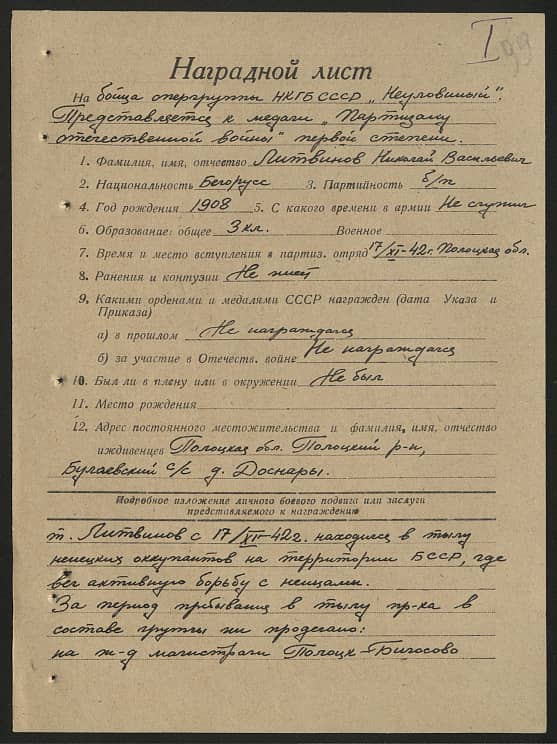 I
99
Наградной лист
На бойца опергруппы НКГБ СССР „Неуловимый".
Представляется к медали „Партизану
отечественной войны" первой степени.
1. Фамилия, имя, отчество Литвинов Николай Васильевич
2. Национальность Белорусс 3. Партийность б/п
4. Год рождения 1908 5. С какого времени в армии Не служил
6. Образование: общее 3 кл. Военное
7. Время и место вступления в партиз. отряд 17/XI-42г. Полоцкая обл.
8. Ранения и контузии Не имеет
9. Какими орденами и медалями СССР награжден (дата Указа и
Приказа)
а) в прошлом Не награждался
б) за участие в Отечеств. войне Не награждался
10. Был ли в плену или в окружении Не был
11. Место рождения
12. Адрес постоянного местожительства и фамилия, имя, отчество
иждивенцев Полоцкая обл. Полоцкий р-н,
с/с д.
Подробное изложение личного боевого подвига или заслуги
представляемого к награждению
т. Литвинов с 17/XI-42г. находился в тылу
немецких оккупантов на территории БССР, где
вел активную борьбу с немцами.
За период пребывания в тылу пр-ка в
составе группы им проделано:
на ж-д магистрали Полоцк-Бигосово